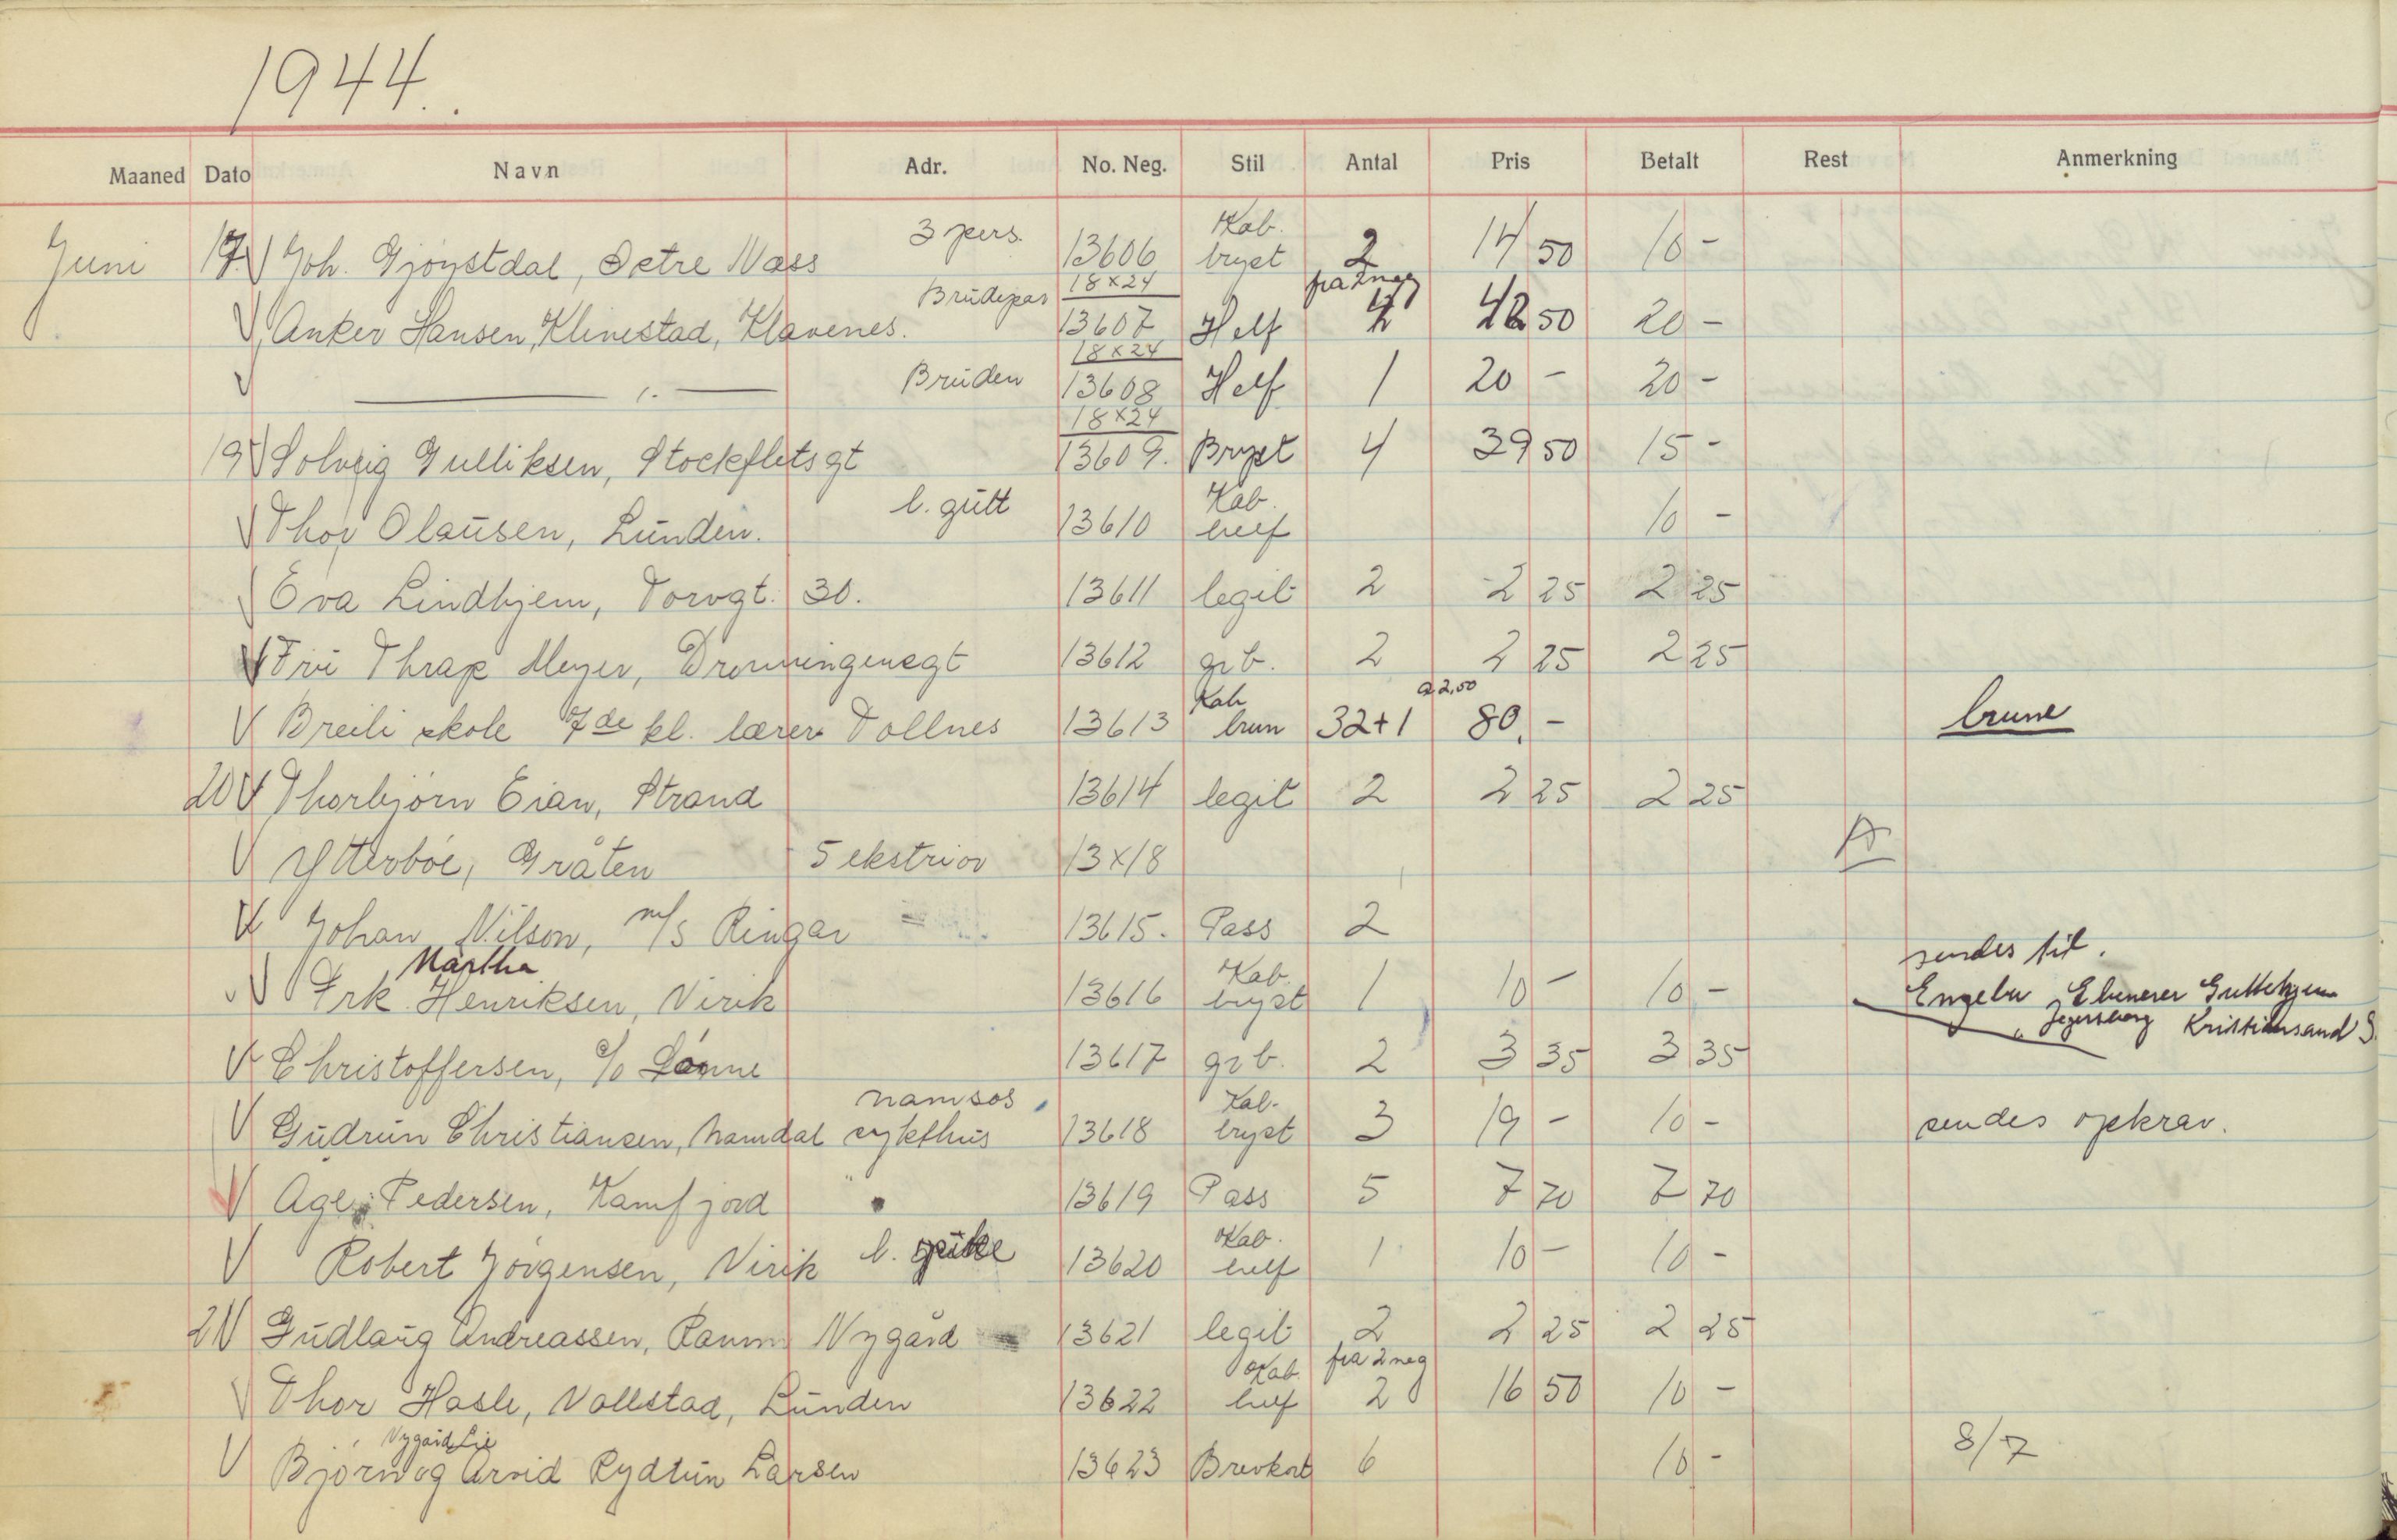 1944.
Maaned Dato Navn Adr. No. Neg. Stil Antal Pris Betalt Rest Anmerkning
Juni 17. V Joh. Gjønstdal, Setre Næss 3 pers. 13606 Kab. bryst 2 14 50 10 -
V Anker Hansen, Klinestad, Klavenes. Brudepar 18x24 13607 Helf fra 2 neg 4 42 50 20 -
V — " — Bruden 18x24 13608 Helf 1 20 - 20 -
19 V Solveig Gulliksen, Stockfletsgt 18x24 13609. Bryst 4 39 50 15 -
V Thor Olausen, Lunden. l. gutt 13610 Kab. helf 10 -
V Eva Lindhjem, Torvgt. 30. 13611 legit 2 2 25 2 25
V Fru Thrap Meyer, Dronningensgt 13612 grb. 2 2 25 2 25
V Breili skole 7de kl. lærer Tollnes 13613 Kab brun 32+1 a 2,50 80,- brune
20 V Thorbjørn Eian, Strand 13614 legit 2 2 25 2 25
V Ytterbøe, Gråten 5 ekstriør 13x18 A
V Johan Nilson, m/s Ringar 13615. Pass 2
V Frk. Martha Henriksen, Virik 13616 Kab. bryst 1 10 - 10 - sendes til.
Kristiansand S.
V Christoffersen, c/o Lønne 13617 grb. 2 3 35 3 35
V Gudrun Christiansen, Namdal sykehus namsos 13618 Kab. bryst 3 19 - 10 - sendes opkrav.
V Age Pedersen, Kamfjord 13619 Pass 5 7 70 7 70
V Robert Jørgensen, Virik l. 13620 Kab. helf 1 10 - 10 -
21 V Gudlaug Andreassen, Ramm Nygård 13621 legit 2 2 25 2 25
V Thor Hasle, Vollstad, Lunden 13622 Kab. helf fra 2 neg 2 16 50 10 -
V Bjørn og Arvid Rydtun Larsen Nygård Lie 13623 Brevkort 6 10 - 8/7